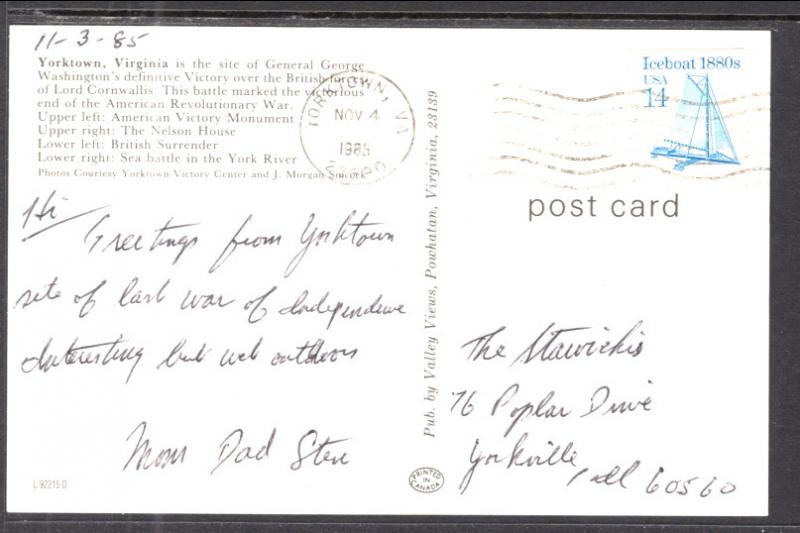 11-3-85
Yorktown, Virginia is the site of General George
Washington's definitive Victory over the British forces
of Lord Cornwallis. This battle marked the victorious
end of the American Revolutionary War.
Upper left: American Victory Monument
Upper right: The Nelson House
Lower left: British Surrender
Lower right: Sea battle in the York River
Photos Courtesy Yorktown Victory Center and J. Morgan
YORKTOWN, VA
NOV 4
1985
Iceboat 1880s
USA
14
post card
Hi
Greetings from Yorktown
site of last war of Independence
Interesting but wet outdoors
Mom Dad Steve
Pub. by Valley Views, Powhatan, Virginia, 23139
The Stawickis
76 Poplar Drive
Yorkville
Ill 60560
L 92215-D
PRINTED
IN
CANADA